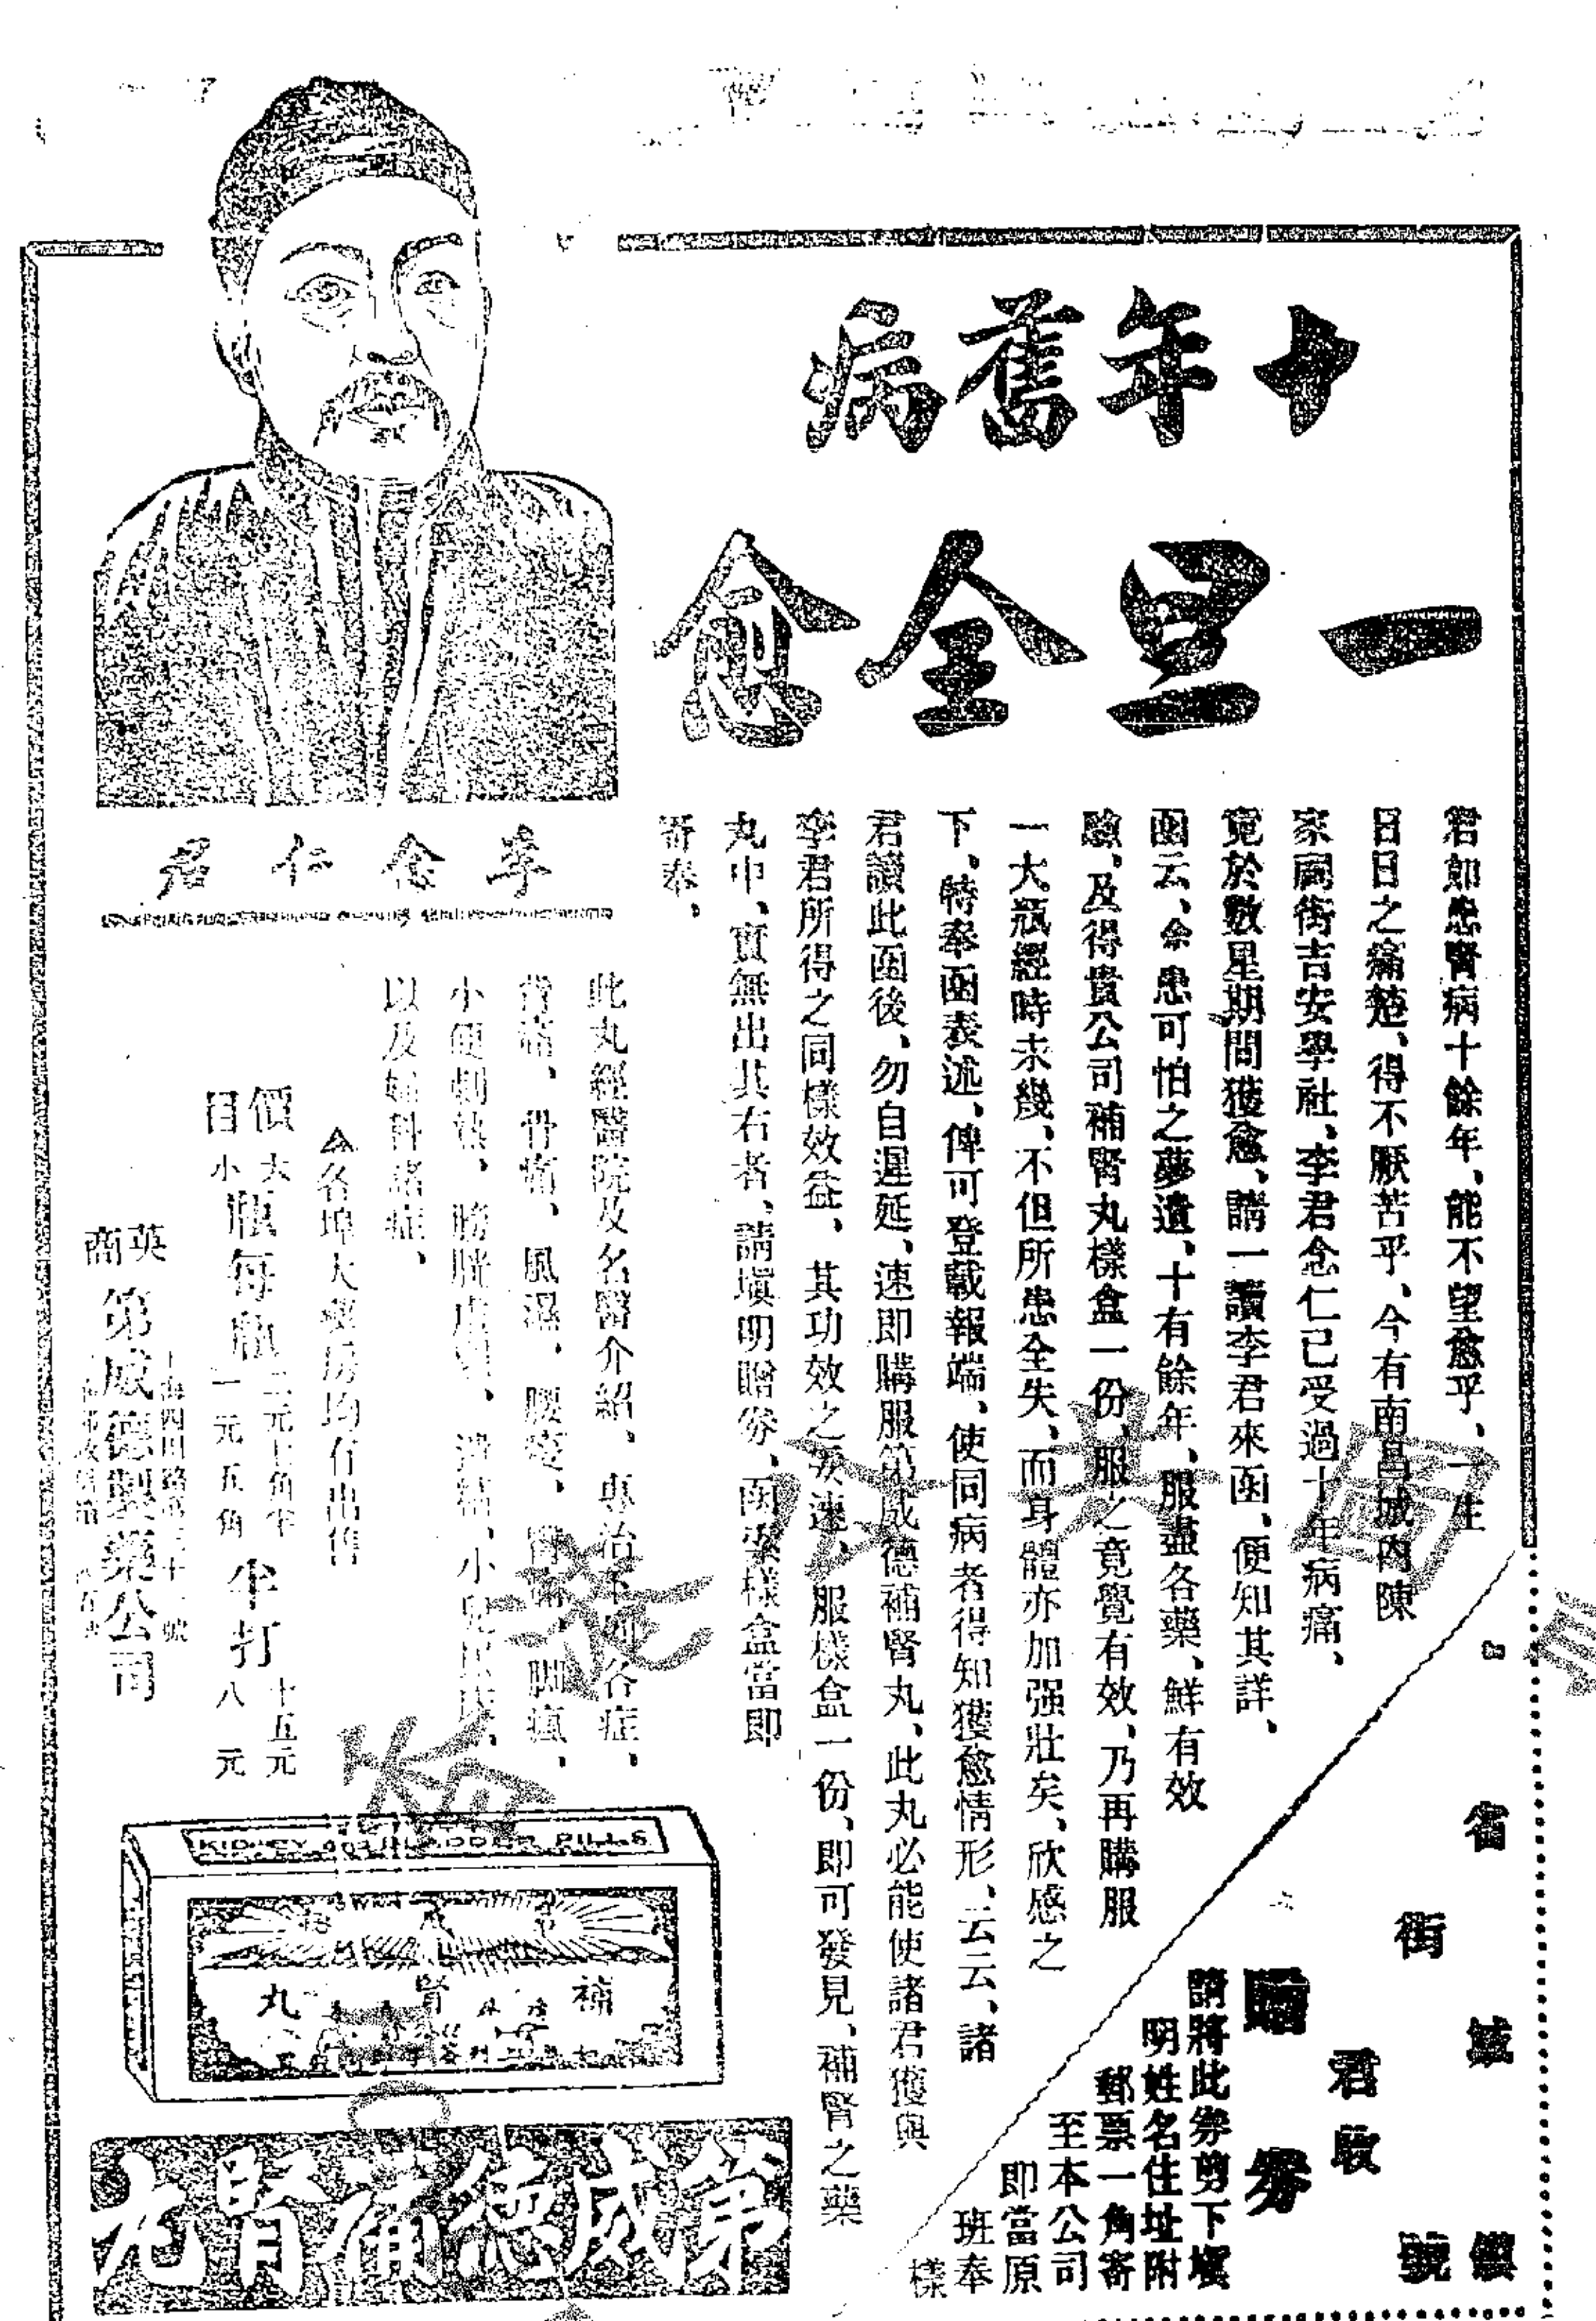 十年舊病
一旦全愈
君如患腎病十餘年、能不望愈乎、一生
日日之痛楚、得不厭苦乎、今有南昌城內陳
家同街吉安學社、李君念仁已受過十年病痛、
竟於數星期間獲愈、請一讀李君來函、便知其詳、
函云、余患可怕之夢遺、十有餘年、服盡各藥、鮮有效
驗、及得貴公司補腎丸樣盒一份、服之竟覺有效、乃再購服
一大瓶經時未幾、不但所患全失、而身體亦加强壯矣、欣感之
下、特奉函表述、俾可登載報端、使同病者得知獲愈情形、云云、諸
君讀此函後、勿自遲延、速即購服第威德補腎丸、此丸必能使諸君獲與
李君所得之同樣效益、其功效之迅速、服樣盒一份、即可發見、補腎之藥
丸中、實無出其右者、請塡明贈券、函索樣盒當即
寄奉、
李念仁君
此丸經醫院及名醫介紹、專治下列各症、
背痛、骨痛、風濕、腰痠、脚瘋、
小便刺熱、膀胱、小兒
以及婦科諸症、
各埠大藥房均有出售
價目 大瓶每瓶二元七角半 半打十五元
小瓶每瓶一元五角 半打八元
英商 第威德製藥公司
上海四川路 十一號
KIDNEY AND BLADDER PILLS
補腎丸
第威德補腎丸
贈券
請將此券剪下塡
明姓名住址附
郵票一角寄
至本公司
即當原
班奉
樣
君收
省 城 鎮
街 號